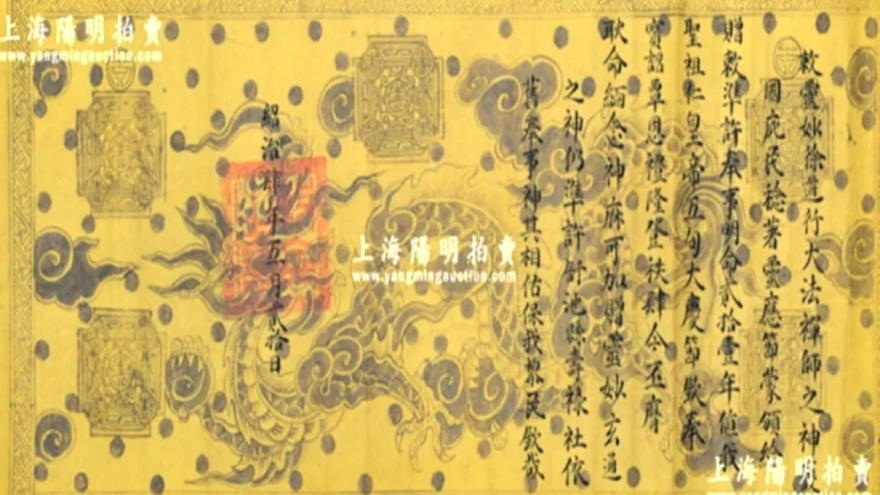 上海陽明拍賣
www.yangmingauction.com
敕靈妙徐道行大法禪師之神
國庇民稔著靈應節蒙頒給
贈敕準許奉事明命貳拾壹年值我
聖祖仁皇帝五旬大慶節欽奉
寶詔覃恩禮隆登秩肆今丕膺
耿命緬念神庥可加贈靈妙玄通
之神仍準許舒池縣壽祿社依
舊奉事神其相佑保我黎民欽哉
紹治肆年五月貳拾日
上海陽明拍賣
www.yangmingauction.com
上海陽明拍賣
www.yangmingauction.com